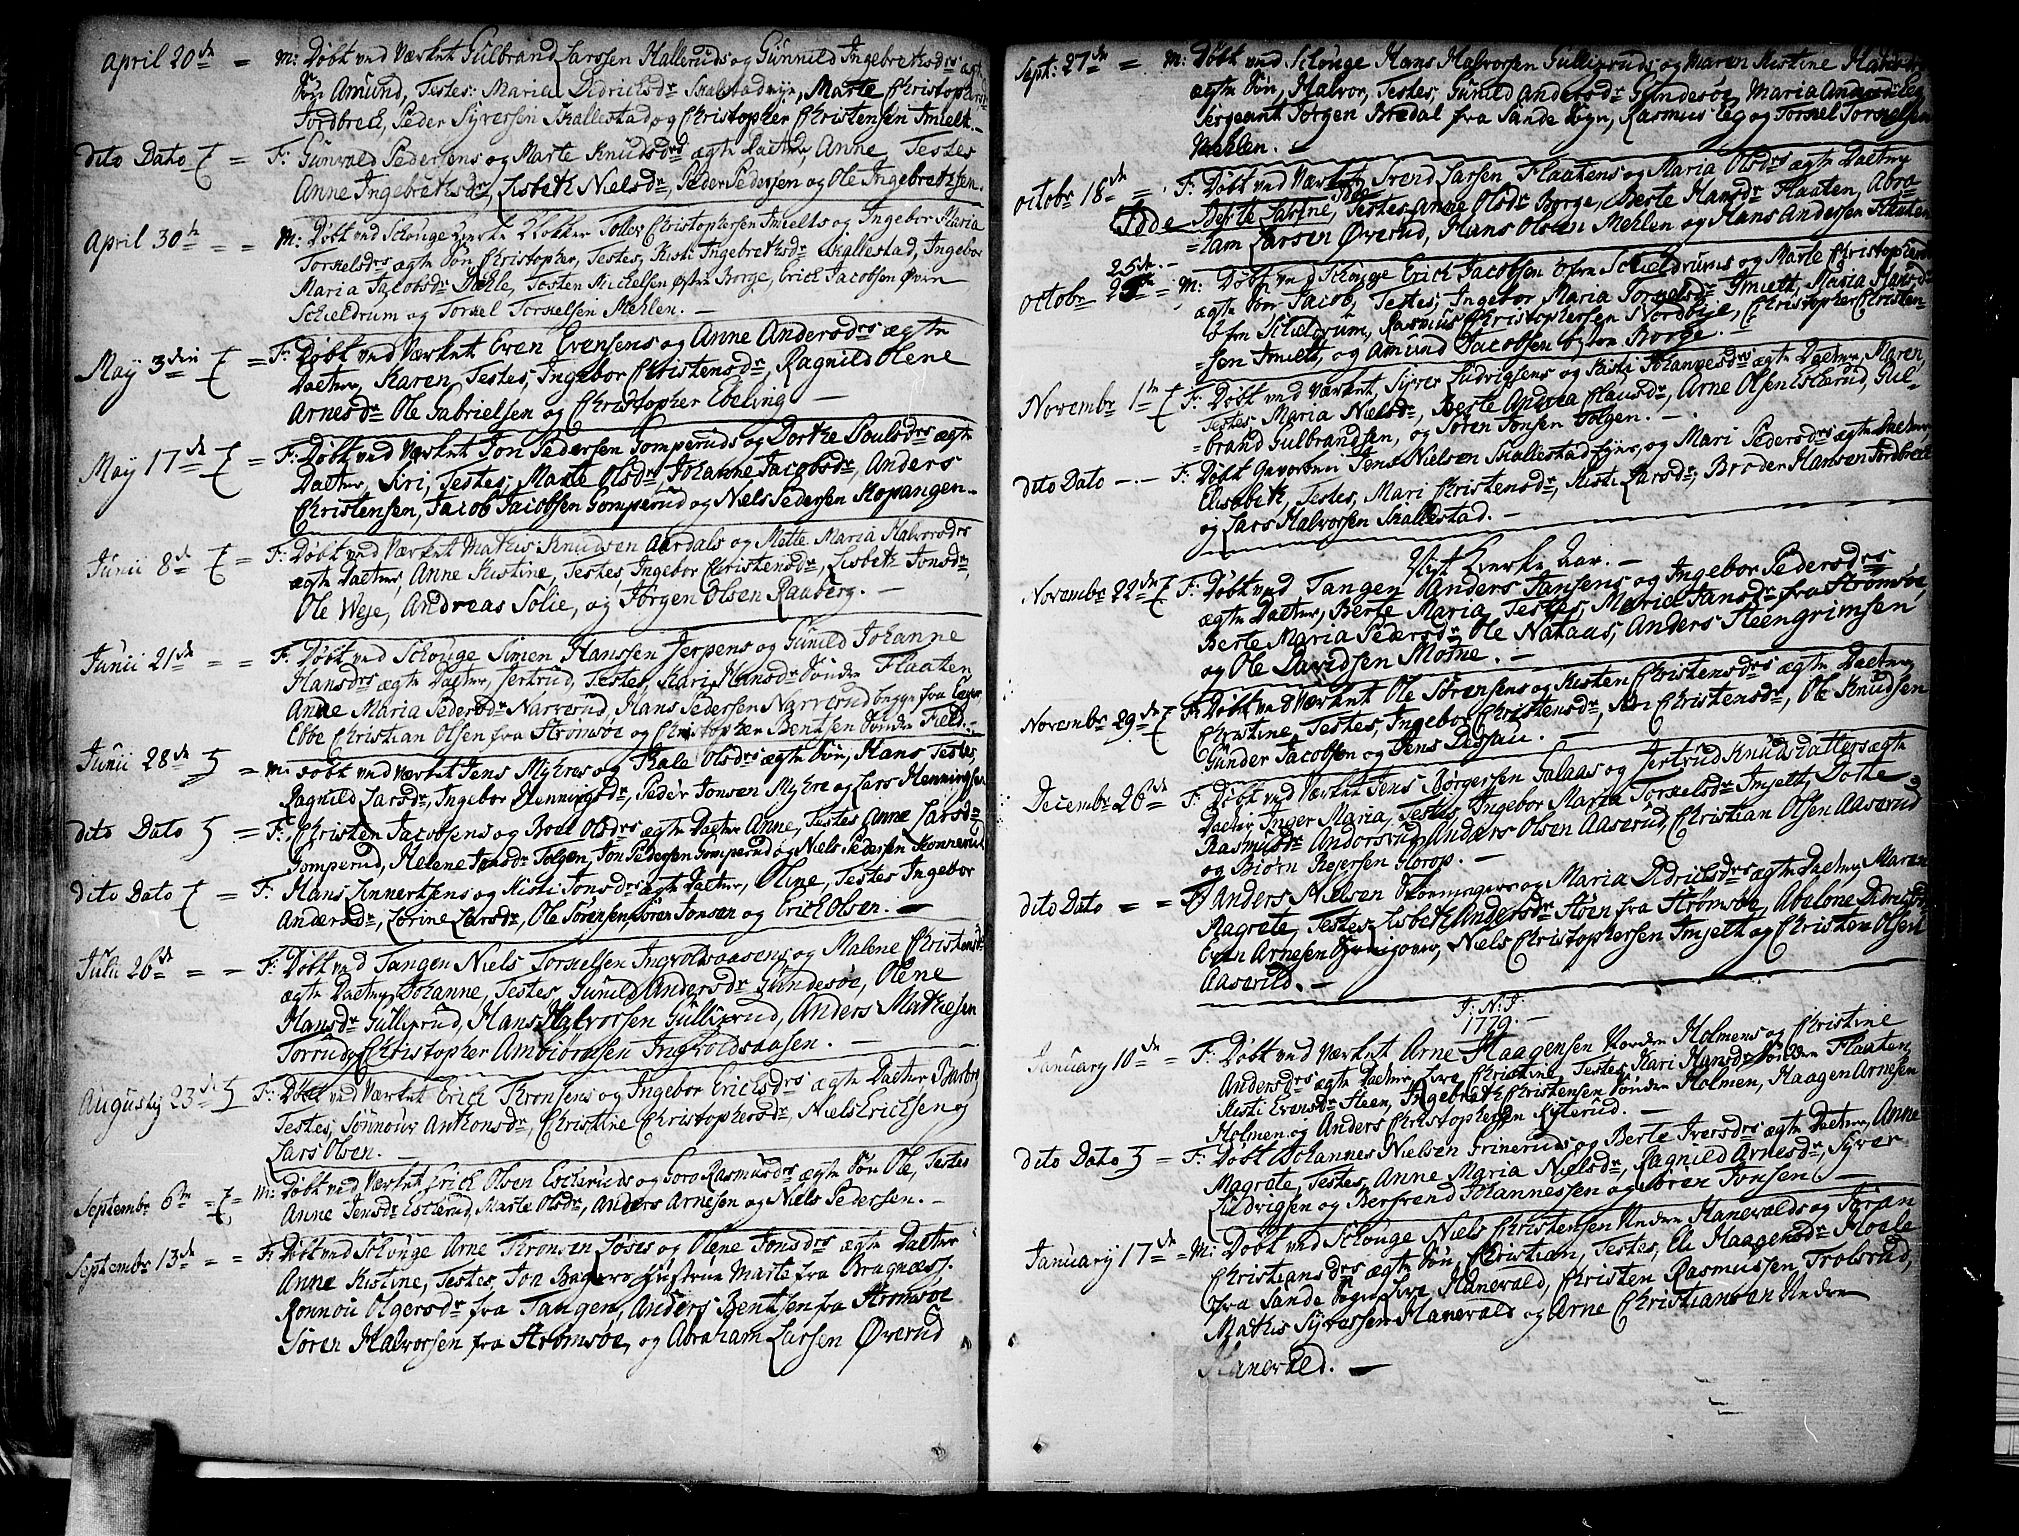 April 20de = M: Døbt ved Værket Gulbrand Larssen Hallerud og Gunnild Ingebretsdrs ægte
Søn Amund, Testes: Maria Didrichsdr Skalstad, Marte Christophers
Jordbrek, Peder Syversen Skallestad og Christopher Christensen Imielt.
dito Dato = F: Gunvald Pedersens og Marte Knudsdrs ægte Datter, Anne Testes
Anne Ingebretsdr, Lisbeth Nielsdr, Peder Pedersen og Ole Ingebrethsen.
April 30te = = M: Døbt ved Schouge Kierke Klokker Tollov Christophersen Imielts og Ingebor Maria
Torkelsdrs ægte Søn Christopher, Testes, Kisti Ingebretsdr Skallestad, Ingebor
Maria Jacobsdr Mehle, Torsten Michelsen Østen Borge, Erick Jacobsen Øvern
Schieldrum og Torkel Torkelsen Mehlen.
May 3die = F: Døbt ved Værket Even Evensens og Anne Andersdrs ægte
Datter, Karen, Testes, Ingebor Christensdr, Ragnild Olene
Arnesdr Ole Gabrielsen og Christopher Ebeling
May 17de = F: Døbt ved Værket Jon Pedersen Gomperuds og Dorthe Poulsdrs ægte
Datter, Siri, Testes, Marte Olsdr, Johanne Jacobsdr, Anders
Christensen, Jacob Jacobsen Gomperud og Niels Pedersen Kopangen
Junii 8de = F: Døbt ved Værket Mathis Knudsen Aardals og Mette Maria Halvorsdrs
ægte Datter, Anne Kistine, Testes, Ingebor Christensdr, Lisbeth Jonsdr,
Ole Weje, Andreas Solie, og Jørgen Olsen Raaberg.
Junii 21de = = F: Døbt ved Schouge Simen Hanssen Jerpens og Gunild Johanne
Hansdrs ægte Datter, Jertrud, Testes, Kari Hansdr Sønden Flaaten,
Anne Maria Pedersdr Narverud, Hans Pedersen Narverud begge fra Eger
Ebbe Christian Olsen fra Strømsøe og Christopher Bentsen Sønden Field.
Junii 28de = M: Døbt ved Værket Jens Myhres og Kale Olsdrs ægte Søn, Hans Testes,
Ragnild Larsdr, Ingebor Henningsdr, Peder Jonsen Myhre og Lars Henningsen
dito Dato = F: Christen Jacobsens og Boel Olsdrs ægte Datter Anne, Testes Anne Larsdr
Gomperud, Helene Jonsdr Tolgen, Jon Pedersen Gomperud og Niels Pedersen
dito Dato = F: Hans Linnertsens og Kisti Jonsdrs ægte Datter, Oline, Testes Ingebor
Andersdr, Lorine Larsdr, Ole Sørensen, Søren Jonsen og Erich Olsen.
Julii 26de = = F: Døbt ved Tangen Niels Torkelsen Ingvoldsaasens og Malene Christensdrs
ægte Datter, Johanne, Testes, Gunild Andersdr Gundesøe, Olene
Hansdr Gullixrud, Hans Halvorsen Gullixrud, Anders Mathiesen
Torrud, Christopher Ambiørnsen Ingvoldsaasen.
Augusty 23de F: Døbt ved Værket Erick Thronsens og Ingebor Ericksdrs ægte Datter Barbra
Testes, Sønnouv Anthonsdr, Christine Christophersdr, Niels Ericksen og
Lars Olsen.
Septembr 6te = M: Døbt ved Værket Erick Olsen Esteruds og Goro Rasmusdrs ægte Søn Ole, Testes
Anne Jensdr Esterud, Marte Olsdr, Anders Arnesen og Niels Pedersen.
Septembr 13de = = F: Døbt ved Schouge Arne Thronsen Løses og Olene Jonsdrs ægte Datter
Anne Kistine, Testes, Jon Bagers Hustrue Marta fra Bragnæss.
Ronnou Olgersdr fra Tangen, Anders Bentsen fra Strømsøe
Søren Halvorsen fra Strømsøe, og Abraham Larsen Øverud
Sept: 27de = M: Døbt ved Schouge Hans Halvorsen Gullixruds og Maren Kistine Hansdrs
ægte Søn, Halvor, Testes, Gunild Andersdr Gundesøe, Maria
Sergeant Jørgen Brødal fra Sande Sogn, Rasmus Leg og Torkel Torkelsen
Mehlen.
Octobr 18de = F: Døbt ved Værket Svend Larsen Flaatens og Maria Olsdrs ægte Datter
Idde Berte Catrine, Testes Anne Olsdr Borge, Berte Hansdr Flaaten, Abra
=ham Larsen Øverud, Hans Olsen Mehlen og Hans Andersen Flaaten
25de
Octobr 25de = M: Døbt ved Schouge Erick Jacobsen Øfre Schieldrums og Marte Christophersdrs
ægte Søn Jacob, Testes, Ingebor Maria Torkelsdr Imielt, Maria Hansdr
Øfre Schieldrum, Rasmus Christophersen Nordbye, Christopher Christen
=sen Imielt, og Amund Jacobsen Østen Borge.
Novembr 1te F: Døbt ved Værket, Syver Ludvigsens og Kisti Johannesdrs ægte Datter, Maren,
Testes, Maria Nielsdr, Berte Andrea Clausdr, Arne Olsen Esterud, Gul=
=brand Gulbrandsen, og Søren Jonsen Tolgen.
dito Dato F: Døbt Jens Nielsen Skallestad, og Mari Pedersdrs ægte Datter,
Elisabeth, Testes, Mari Christensdr, Kisti Larsdr, Broder Hansen Jordbrek
og Lars Halvorsen Skallestad.
Nyt Kierke Aar.
Novembr 22de F: Døbt ved Tangen Anders Jansens og Ingebor Pedersdrs
ægte Datter, Berte Maria, Testes, Maria Jansdr fra Strømsøe,
Berte Maria Pedersdr, Ole Nataas, Anders Steengrimsen
og Ole Davidsen Mosne.
Novembr 29de F: Døbt ved Værket Ole Sørensens og Kisten Christensdrs ægte Datter
Christine, Testes, Ingebor Christensdr, Siri Christensdr, Ole Knudsen
Gunder Jacobsen og Jens Dessau.
Decembr 26de F: Døbt ved Værket Jens Børgersen Galaas og Jertrud Knudsdatters ægte
Datter Inger Maria, Testes, Ingebor Maria Torkelsdr Imielt, Dorthe
Rasmusdr Andorsrud, Anders Olsen Aaserud, Christian Olsen Aaserud
og Biørn Rejersen Glorop.
dito Dato = = F: Anders Nielsen og Maria Didrichsdrs ægte Datter Maren
Magrete, Testes, Lisbeth Andersdr Støen fra Strømsøe, Abelone Didrichsdr
Even Arnesen, Niels Christophersen Imjelt og Christen Olsen
Aaserud.
J: N: J
1779.
January 10de = F: Døbt ved Værket Arne Haagensen Norden Holmens og Christine
Andersdrs ægte Datter, Live Christine, Testes, Kari Hansdr Sønden Flaaten,
Kisti Evensdr Steen, Ingebreth Christensen Sønden Holmen, Haagen Arnesen
Holmen og Anders Christophersen Sÿterud.
dito Dato = F: Døbt Johannes Nielsen Grineruds og Berte Iversdrs ægte Datter, Anne
Magrete, Testes, Anne Maria Nielsdr, Ragnild Arnesdr, Syver
Ludvigsen og Bersvend Johannessen og Søren Jonsen
January 17de = M: Døbt ved Schouge Niels Christensen Undre Hanevalds og Jøran
Christiansdrs ægte Søn, Christian, Testes, Haagensdr Hoele
fra Sande Sogn, Live Hanevald, Christen Rasmussen, Trolsrud,
Mathis Syversen Hanevald og Arne Christiansen Undre
Hanevald.